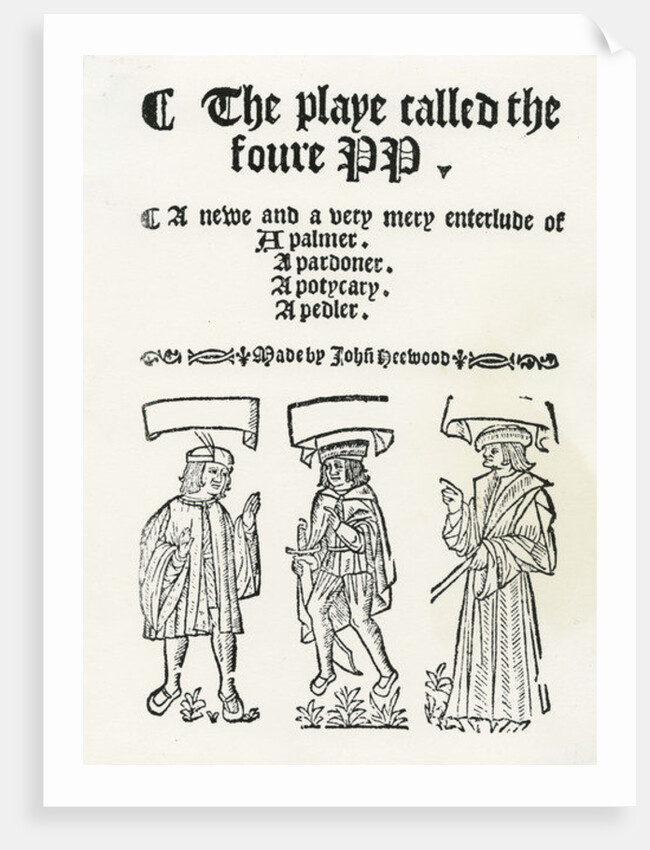 ¶ The playe called the
foure PP.
¶ A newe and a very mery enterlude of
A palmer.
A pardoner.
A potycary.
A pedler.
Made by John Heewood